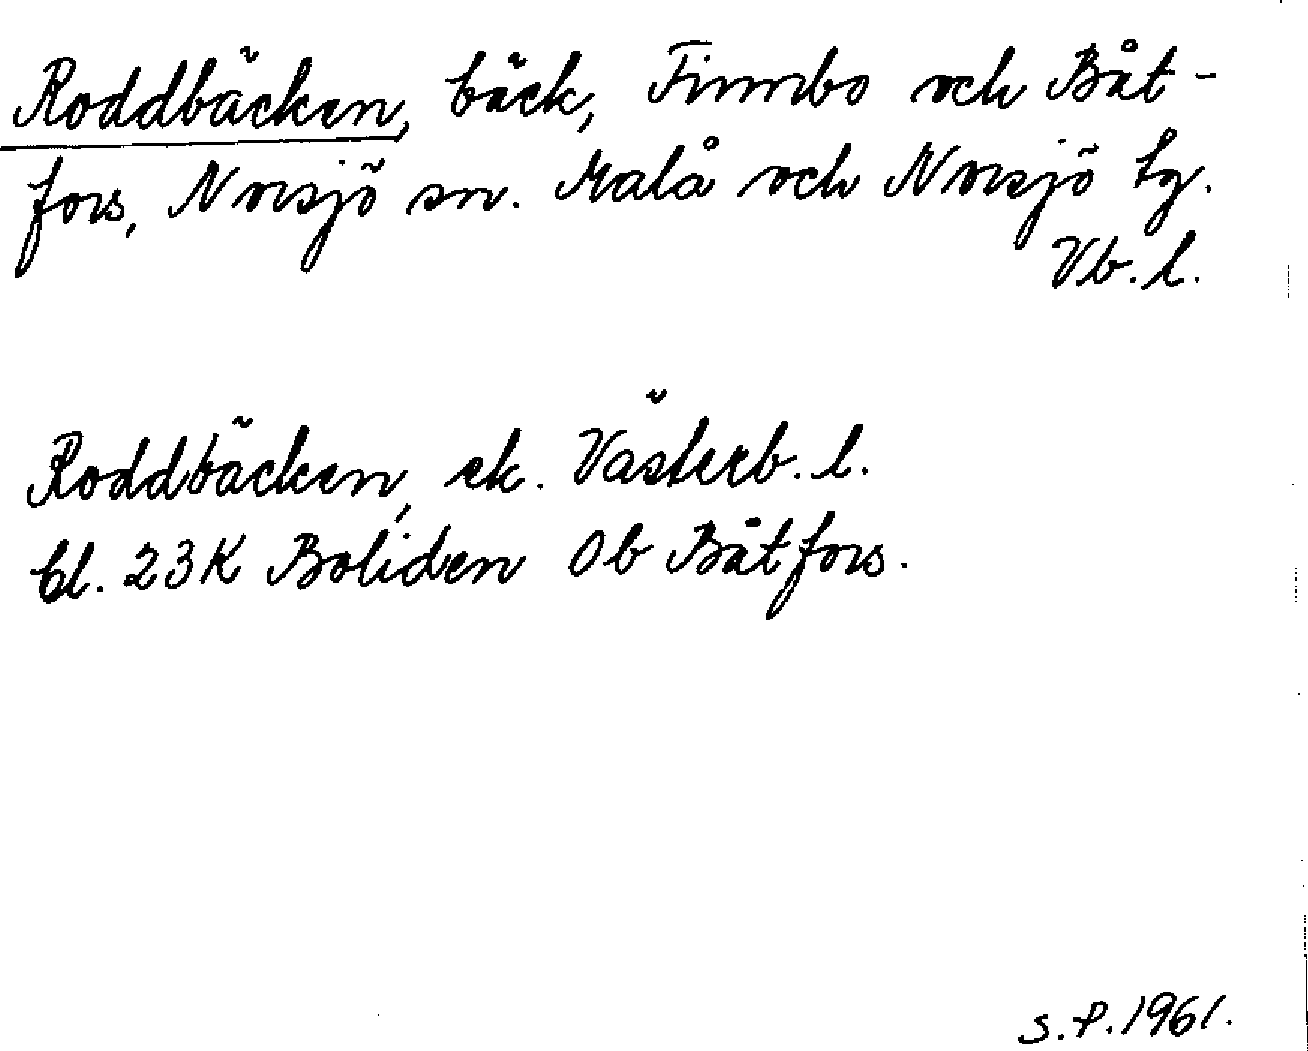 Roddbäcken, bäck, Finnbo och Båt-
fors, Norsjö sn. Malå och Norsjö tg.
Vb. l.
Roddbäcken, ek. Västerb. l.
bl. 23K Boliden Ob Båtfors.
S.P. 1961.